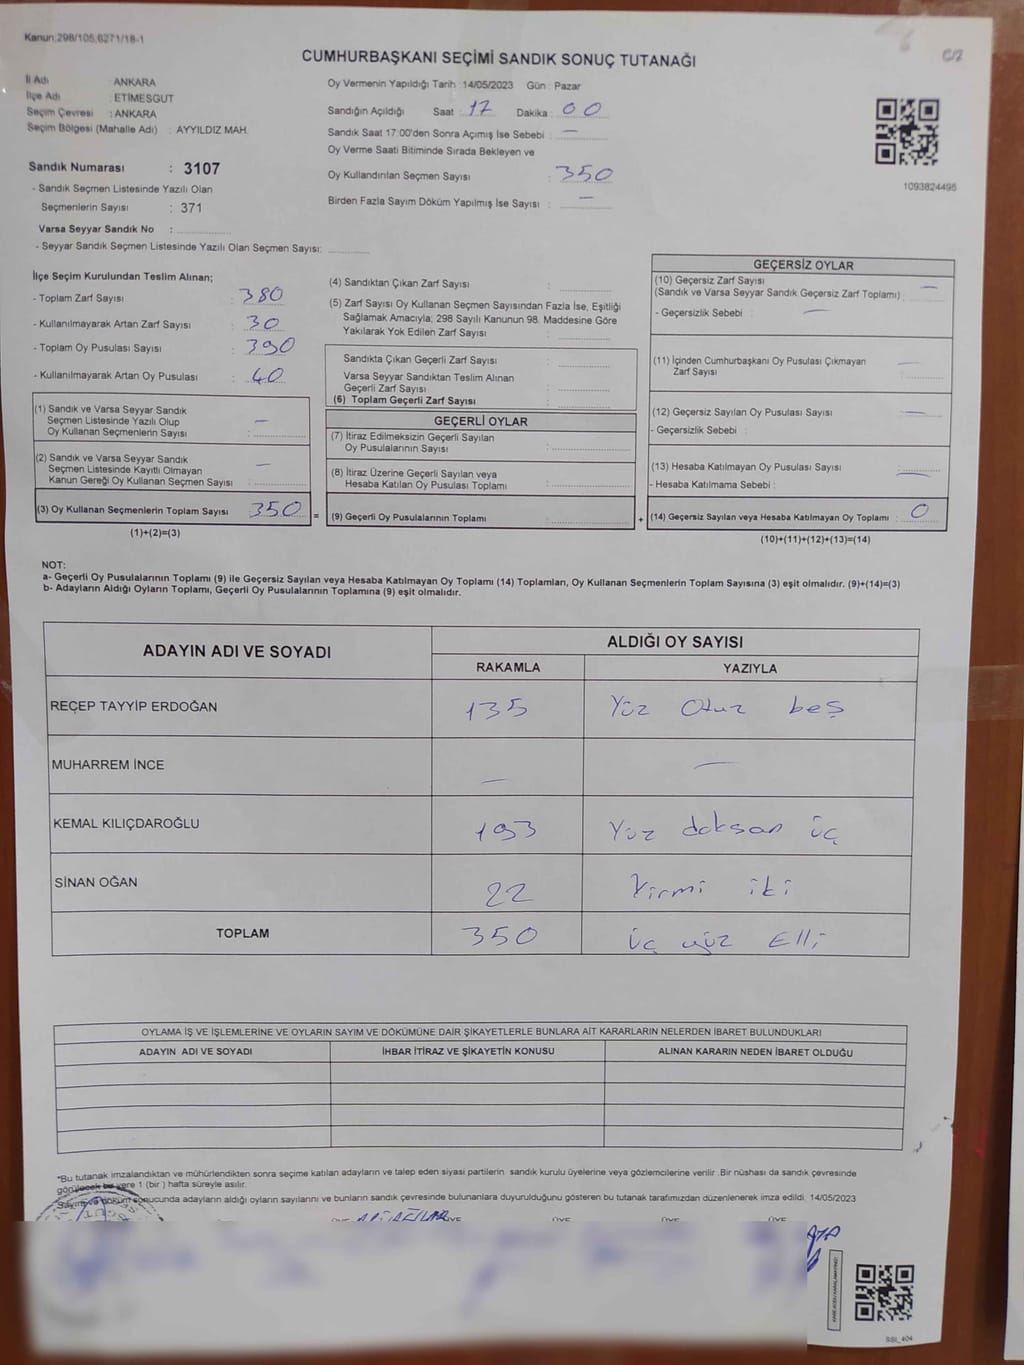 Kanun:298/105,6271/18-1
C/2
CUMHURBAŞKANI SEÇİMİ SANDIK SONUÇ TUTANAĞI
İl Adı : ANKARA
İlçe Adı : ETİMESGUT
Seçim Çevresi : ANKARA
Seçim Bölgesi (Mahalle Adı) : AYYILDIZ MAH.
Sandık Numarası : 3107
- Sandık Seçmen Listesinde Yazılı Olan
Seçmenlerin Sayısı : 371
Varsa Seyyar Sandık No :
- Seyyar Sandık Seçmen Listesinde Yazılı Olan Seçmen Sayısı:
Oy Vermenin Yapıldığı Tarih : 14/05/2023 Gün : Pazar
Sandığın Açıldığı Saat : 17 Dakika : 00
Sandık Saat 17:00'den Sonra Açımış İse Sebebi : —
Oy Verme Saati Bitiminde Sırada Bekleyen ve
Oy Kullandırılan Seçmen Sayısı : 350
Birden Fazla Sayım Döküm Yapılmış İse Sayısı : —
1093824496
İlçe Seçim Kurulundan Teslim Alınan;
- Toplam Zarf Sayısı : 380
- Kullanılmayarak Artan Zarf Sayısı : 30
- Toplam Oy Pusulası Sayısı : 390
- Kullanılmayarak Artan Oy Pusulası : 40
(1) Sandık ve Varsa Seyyar Sandık
Seçmen Listesinde Yazılı Olup
Oy Kullanan Seçmenlerin Sayısı : —
(2) Sandık ve Varsa Seyyar Sandık
Seçmen Listesinde Kayıtlı Olmayan
Kanun Gereği Oy Kullanan Seçmen Sayısı : —
(3) Oy Kullanan Seçmenlerin Toplam Sayısı : 350 =
(1)+(2)=(3)
(4) Sandıktan Çıkan Zarf Sayısı :
(5) Zarf Sayısı Oy Kullanan Seçmen Sayısından Fazla İse, Eşitliği
Sağlamak Amacıyla; 298 Sayılı Kanunun 98. Maddesine Göre
Yakılarak Yok Edilen Zarf Sayısı :
Sandıkta Çıkan Geçerli Zarf Sayısı :
Varsa Seyyar Sandıktan Teslim Alınan
Geçerli Zarf Sayısı :
(6) Toplam Geçerli Zarf Sayısı :
GEÇERLİ OYLAR
(7) İtiraz Edilmeksizin Geçerli Sayılan
Oy Pusulalarının Sayısı :
(8) İtiraz Üzerine Geçerli Sayılan veya
Hesaba Katılan Oy Pusulası Toplamı :
(9) Geçerli Oy Pusulalarının Toplamı : +
GEÇERSİZ OYLAR
(10) Geçersiz Zarf Sayısı
(Sandık ve Varsa Seyyar Sandık Geçersiz Zarf Toplamı) : —
- Geçersizlik Sebebi : —
(11) İçinden Cumhurbaşkanı Oy Pusulası Çıkmayan
Zarf Sayısı : —
(12) Geçersiz Sayılan Oy Pusulası Sayısı : —
- Geçersizlik Sebebi :
(13) Hesaba Katılmayan Oy Pusulası Sayısı : —
- Hesaba Katılmama Sebebi :
(14) Geçersiz Sayılan veya Hesaba Katılmayan Oy Toplamı : 0
(10)+(11)+(12)+(13)=(14)
NOT:
a- Geçerli Oy Pusulalarının Toplamı (9) ile Geçersiz Sayılan veya Hesaba Katılmayan Oy Toplamı (14) Toplamları, Oy Kullanan Seçmenlerin Toplam Sayısına (3) eşit olmalıdır. (9)+(14)=(3)
b- Adayların Aldığı Oyların Toplamı, Geçerli Oy Pusulalarının Toplamına (9) eşit olmalıdır.
ADAYIN ADI VE SOYADI ALDIĞI OY SAYISI
RAKAMLA YAZIYLA
REÇEP TAYYİP ERDOĞAN 135 Yüz Otuz beş
MUHARREM İNCE — —
KEMAL KILIÇDAROĞLU 193 Yüz doksan üç
SİNAN OĞAN 22 Yirmi iki
TOPLAM 350 üç yüz Elli
OYLAMA İŞ VE İŞLEMLERİNE VE OYLARIN SAYIM VE DÖKÜMÜNE DAİR ŞİKAYETLERLE BUNLARA AİT KARARLARIN NELERDEN İBARET BULUNDUKLARI
ADAYIN ADI VE SOYADI İHBAR İTİRAZ VE ŞİKAYETİN KONUSU ALINAN KARARIN NEDEN İBARET OLDUĞU
*Bu tutanak imzalandıktan ve mühürlendikten sonra seçime katılan adayların ve talep eden siyasi partilerin sandık kurulu üyelerine veya gözlemcilerine verilir. Bir nüshası da sandık çevresinde
görülecek bir yere 1 (bir) hafta süreyle asılır.
Sayım ve döküm sonucunda adayların aldığı oyların sayılarını ve bunların sandık çevresinde bulunanlara duyurulduğunu gösteren bu tutanak tarafımızdan düzenlenerek imza edildi. 14/05/2023
ÜYE ÜYE ÜYE ÜYE
SSI_404